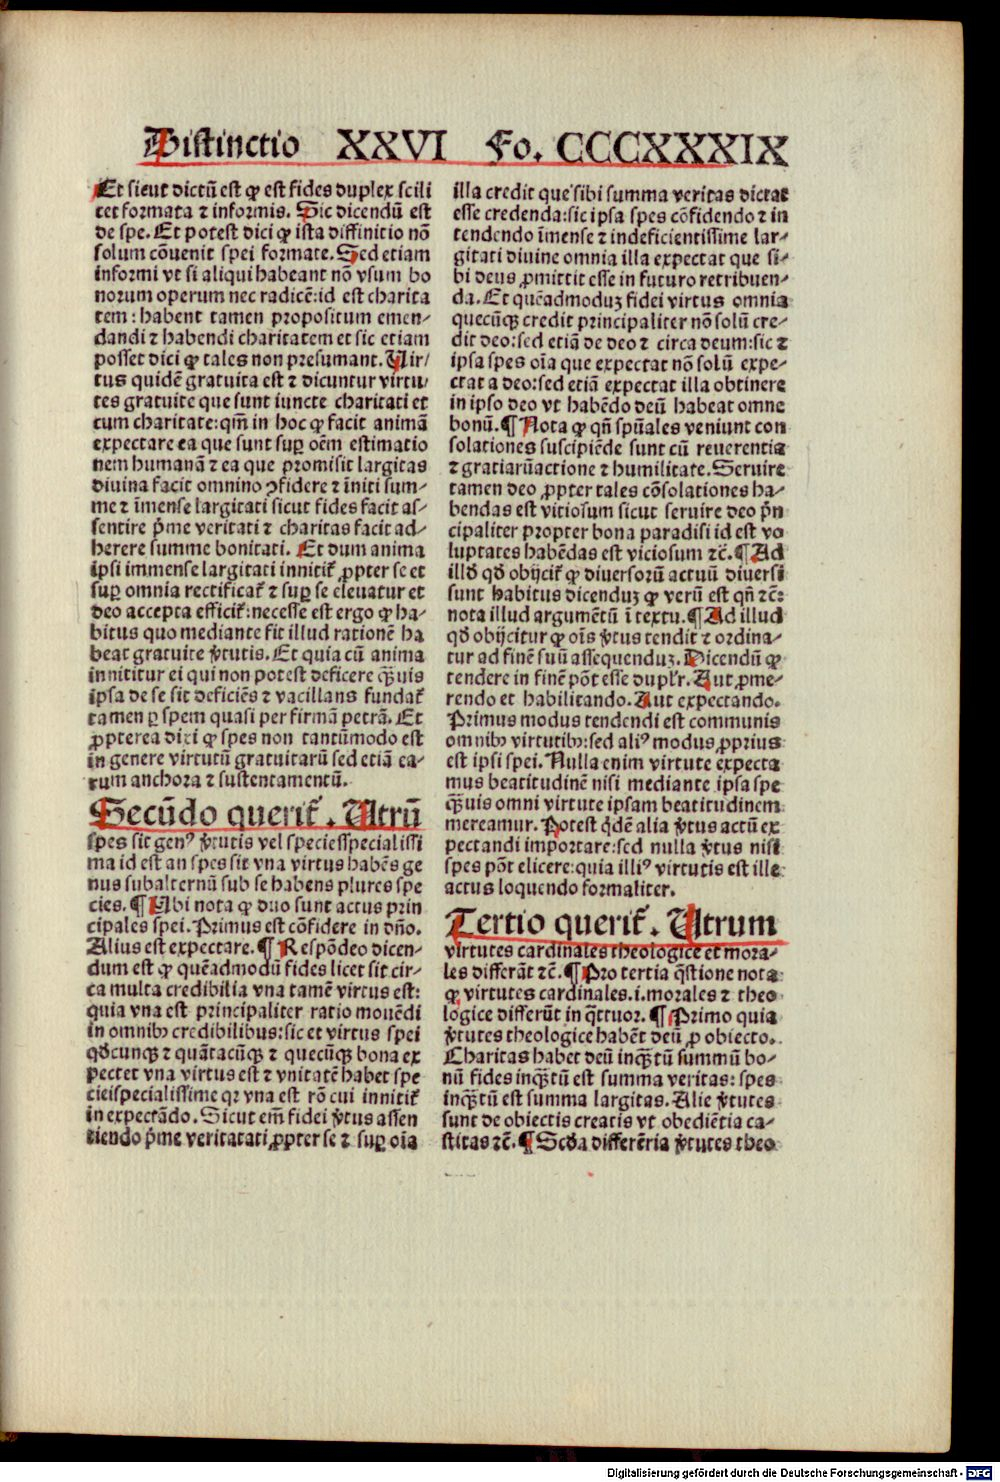 Distinctio XXVI Fo. CCCXXXIX
Et sicut dictū est ꝙ est fides duplex scili
cet formata ⁊ informis. Sic dicendū est
de spe. Et potest dici ꝙ ista diffinitio nō
solum cōuenit spei formate. Sed etiam
informi vt si aliqui habeant nō vsum bo
norum operum nec radicē: id est charita
tem: habent tamen propositum emen-
dandi ⁊ habendi charitatem et sic etiam
posset dici ꝙ tales non presumant. Uir-
tus quidē gratuita est ⁊ dicuntur virtu-
tes gratuite que sunt iuncte charitati et
cum charitate: qm̄ in hoc ꝙ facit animā
expectare ea que sunt suꝑ oēm estimatio
nem humanā ⁊ ea que promisit largitas
diuina facit omnino ꝯfidere ⁊ īniti sum-
me ⁊ īmense largitati sicut fides facit as-
sentire p̄me veritati ⁊ charitas facit ad-
herere summe bonitati. Et dum anima
ipsi immense largitati innitit᷑ ꝓpter se et
suꝑ omnia rectificat᷑ ⁊ suꝑ se eleuatur et
deo accepta efficit᷑: necesse est ergo ꝙ ha-
bitus quo mediante fit illud rationē ha
beat gratuite v̓tutis. Et quia cū anima
innititur ei qui non potest deficere qꝫuis
ipsa de se sit deficiēs ⁊ vacillans fundat᷑
tamen ꝑ spem quasi per firmā petrā. Et
ꝓpterea dici ꝙ spes non tantūmodo est
in genere virtutū gratuitarū sed etiā ea-
rum anchora ⁊ sustentamentū.
Secūdo querit᷑. Utrū
spes sit genꝰ v̓tutis vel speciesspecialissi
ma id est an spes sit vna virtus habēs ge
nus subalternū sub se habens plures spe
cies. ¶ Ubi nota ꝙ duo sunt actus prin
cipales spei. Primus est cōfidere in dn̄o.
Alius est expectare. ¶ Respōdeo dicen-
dum est ꝙ quēadmodū fides licet sit cir-
ca multa credibilia vna tamē virtus est:
quia vna est principaliter ratio mouēdi
in omnibꝫ credibilibus: sic et virtus spei
qd̄cunqꝫ ⁊ quātacūqꝫ ⁊ quecūqꝫ bona ex
pectet vna virtus est ⁊ vnitatē habet spe
cieispecialissime qꝛ vna est rō cui innitit᷑
in expectādo. Sicut em̄ fidei v̓tus assen
tiendo p̄me veritatati ꝓpter se ⁊ suꝑ oīa
illa credit que sibi summa veritas dictat
esse credenda: sic ipsa spes cōfidendo ⁊ in
tendendo īmense ⁊ indeficientissime lar-
gitati diuine omnia illa expectat que si-
bi deus ꝓmittit esse in futuro retribuen-
da. Et quēadmoduꝫ fidei virtus omnia
quecūqꝫ credit principaliter nō solū cre-
dit deo: sed etiā de deo ⁊ circa deum: sic ⁊
ipsa spes oīa que expectat nō solū expe-
ctat a deo: sed etiā expectat illa obtinere
in ipso deo vt habēdo deū habeat omne
bonū. ¶ Nota ꝙ qn̄ spūales veniunt con
solationes suscipiēde sunt cū reuerentia
⁊ gratiarūactione ⁊ humilitate. Seruire
tamen deo ꝓpter tales cōsolationes ha-
bendas est vitiosum sicut seruire deo p̄n
cipaliter propter bona paradisi id est vo
luptates habēdas est viciosum ⁊c̄. ¶ Ad
illd̄ qd̄ obijcit᷑ ꝙ diuersorū actuū diuersi
sunt habitus dicenduꝫ ꝙ verū est qn̄ ⁊c̄:
nota illud argumētū ī textu. ¶ Ad illud
qd̄ obijcitur ꝙ oīs v̓tus tendit ⁊ ordina-
tur ad finē suū assequenduꝫ. Dicendū ꝙ
tendere in finē pōt esse dupłr. Aut ꝓme-
rendo et habilitando. Aut expectando.
Primus modus tendendi est communis
omnibꝫ virtutibꝫ: sed aliꝰ modus ꝓprius
est ipsi spei. Nulla enim virtute expecta
mus beatitudinē nisi mediante ipsa spe
qꝫuis omni virtute ipsam beatitudinem
mereamur. Potest q̇dē alia v̓tus actū ex
pectandi importare: sed nulla v̓tus nisi
spes pōt elicere: quia illiꝰ virtutis est ille
actus loquendo formaliter.
Tertio querit᷑. Utrum
virtutes cardinales theologice et mora-
les differāt ⁊c̄. ¶ Pro tertia q̄stione nota
ꝙ virtutes cardinales .i. morales ⁊ theo
logice differūt in q̄ttuor. ¶ Primo quia
v̓tutes theologice habēt deū ꝓ obiecto.
Charitas habet deū inqꝫtū summū bo-
nū fides inqꝫtū est summa veritas: spes
inqꝫtū est summa largitas. Alie v̓tutes
sunt de obiectis creatis vt obediētia ca-
stitas ⁊c̄. ¶ Scd̄a differētia v̓tutes theo
Digitalisierung gefördert durch die Deutsche Forschungsgemeinschaft - DFG